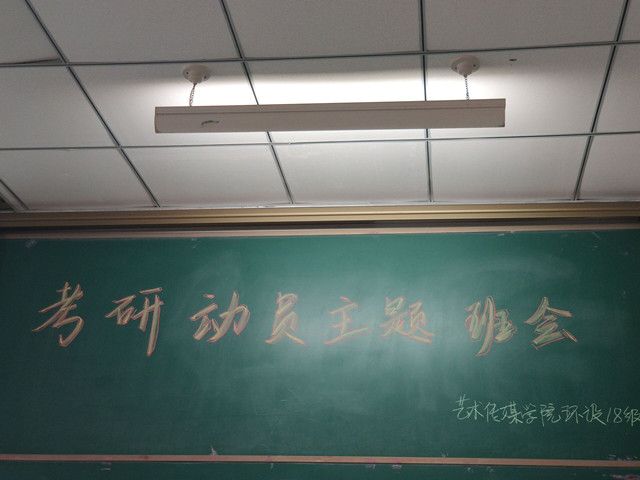 考研动员主题班会
艺术传媒学院环设18级